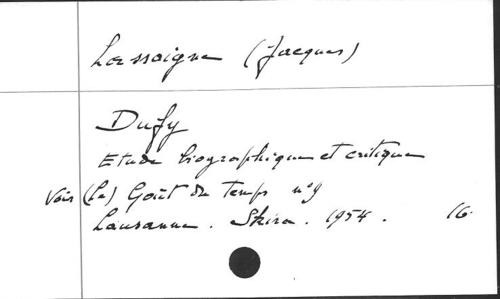 Lassaigne (Jacques)
Dufy
Etude biographique et critique
Voir (Le) Goût du Temps n°9
Lausanne. Skira. 1954. 16.